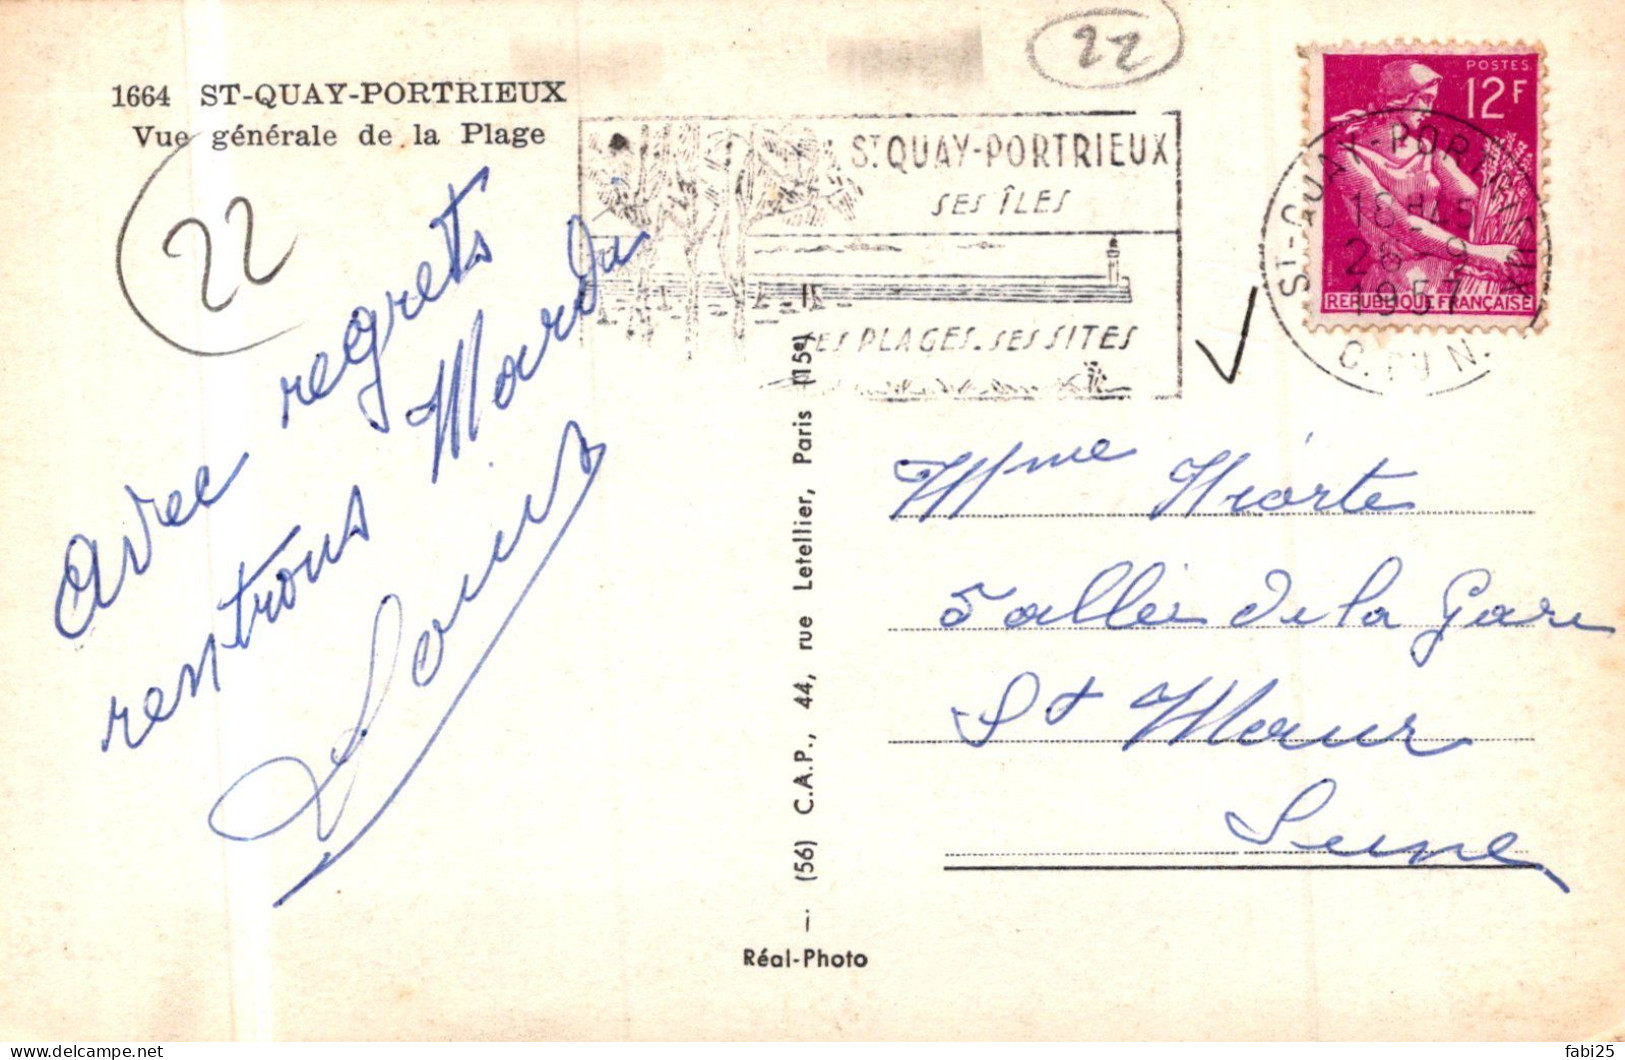 1664 ST-QUAY-PORTRIEUX
Vue générale de la Plage
22
22
avec regrets
rentrons Mardi
Louis
ST QUAY-PORTRIEUX
SES ÎLES
SES PLAGES. SES SITES
POSTES
12F
REPUBLIQUE FRANÇAISE
ST-QUAY-PORTRIEUX
18H45
26-9
1957
C. DU N.
Mme
5 allée de la Gare
St Maur
Seine
(56) C.A.P., 44, rue Letellier, Paris (15e)
Réal-Photo
fabi25